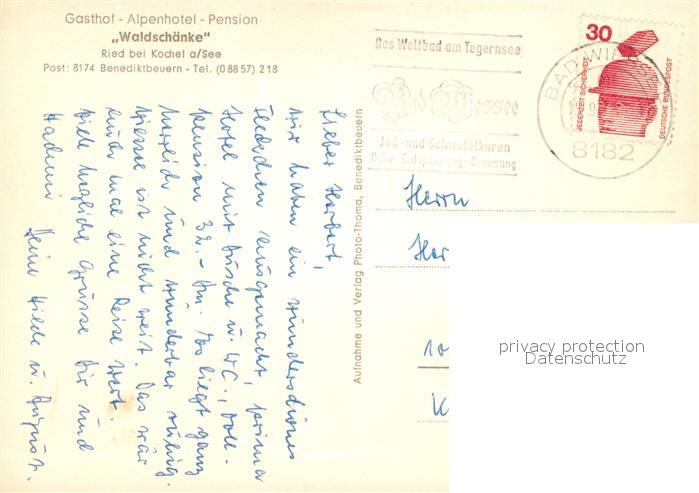 Gasthof - Alpenhotel - Pension
„Waldschänke"
Ried bei Kochel a/See
Post: 8174 Benediktbeuern - Tel. (0 88 57) 2 18
Das Weltbad am Tegernsee
Bad Wiessee
Jod- und Schwefelkuren
Ruhe - Entspannung - Genesung
BAD WIE
8182
30
JEDERZEIT SICHERHEIT
DEUTSCHE BUNDESPOST
Lieber Herbert,
wir haben ein wunderschönes
Fleckchen ausgemacht, prima
Hotel mit Dusche u. WC., Voll-
pension 32.- DM. Es liegt ganz
herrlich und wunderbar ruhig.
Wiessee ist nicht weit. Das wär
auch mal eine Reise wert.
Viele herzliche Grüsse Dir und
Deine Hilde u. August.
Aufnahme und Verlag Photo-Thoma, Benediktbeuern
Herrn
Her
10
K
privacy protection
Datenschutz